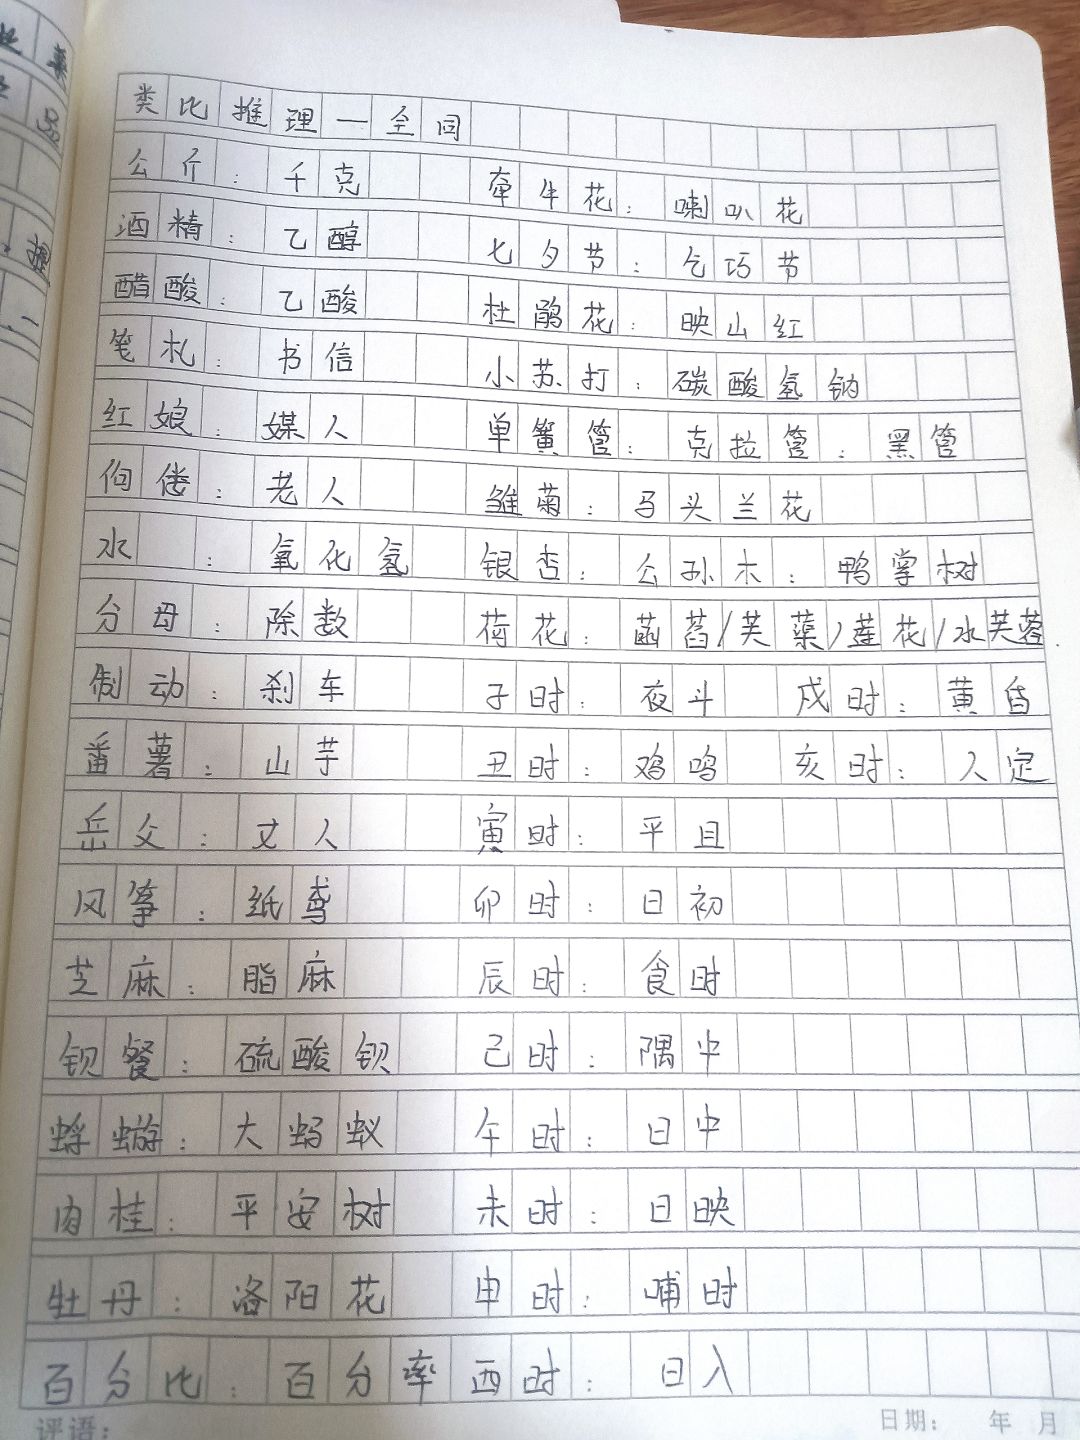 类比推理一全同
公斤：千克 牵牛花：喇叭花
酒精：乙醇 七夕节：乞巧节
醋酸：乙酸 杜鹃花：映山红
笔札：书信 小苏打：碳酸氢钠
红娘：媒人 单簧管：克拉管：黑管
伛偻：老人 雏菊：马头兰花
水：氧化氢 银杏：公孙木：鸭掌树
分母：除数 荷花：菡萏/芙蕖/莲花/水芙蓉
制动：刹车 子时：夜斗 戌时：黄昏
番薯：山芋 丑时：鸡鸣 亥时：人定
岳父：丈人 寅时：平旦
风筝：纸鸢 卯时：日初
芝麻：脂麻 辰时：食时
钡餐：硫酸钡 己时：隅中
蜉蝣：大蚂蚁 午时：日中
肉桂：平安树 未时：日映
牡丹：洛阳花 申时：哺时
百分比：百分率 西时：日入
评语：
日期： 年 月